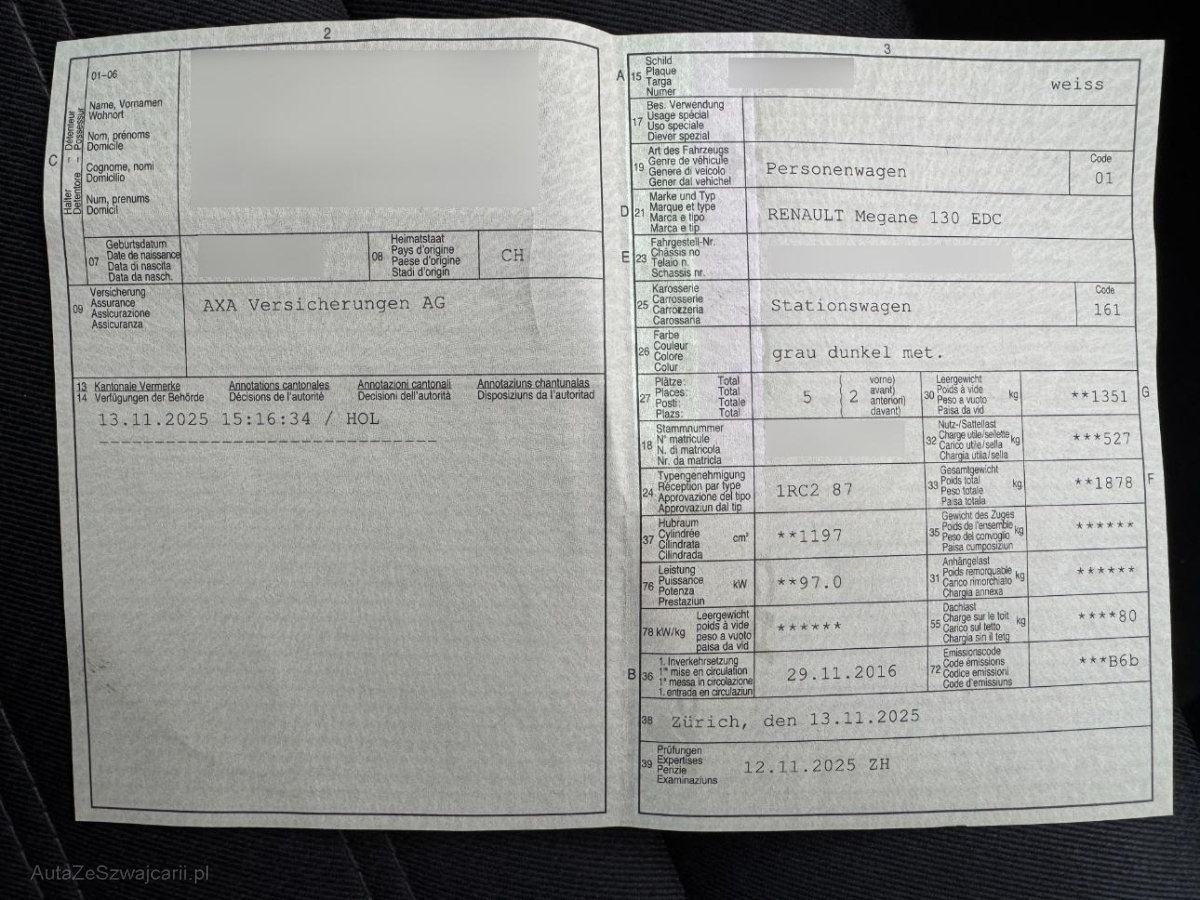 2
01-06
Name, Vornamen
Wohnort
Nom, prénoms
Domicile
Cognome, nomi
Domicilio
Num, prenums
Domicil
C
Halter – Détenteur
Detentore – Possessur
07
Geburtsdatum
Date de naissance
Data di nascita
Data da nasch.
08
Heimatstaat
Pays d'origine
Paese d'origine
Stadi d'origin
CH
09
Versicherung
Assurance
Assicurazione
Assicuranza
AXA Versicherungen AG
13 Kantonale Vermerke Annotations cantonales Annotazioni cantonali Annotaziuns chantunalas
14 Verfügungen der Behörde Décisions de l'autorité Decisioni dell'autorità Disposiziuns da l'autoritad
13.11.2025 15:16:34 / HOL
3
A 15
Schild
Plaque
Targa
Numer
weiss
17
Bes. Verwendung
Usage spécial
Uso speciale
Diever spezial
19
Art des Fahrzeugs
Genre de véhicule
Genere di veicolo
Gener dal vehichel
Personenwagen
Code
01
D 21
Marke und Typ
Marque et type
Marca e tipo
Marca e tip
RENAULT Megane 130 EDC
E 23
Fahrgestell-Nr.
Châssis no
Telaio n.
Schassis nr.
25
Karosserie
Carrosserie
Carrozzeria
Carossaria
Stationswagen
Code
161
26
Farbe
Couleur
Colore
Colur
grau dunkel met.
27
Plätze: Total
Places: Total
Posti: Totale
Plazs: Total
5
2
vorne)
avant)
anteriori)
davant)
30
Leergewicht
Poids à vide
Peso a vuoto
Paisa da vid
kg
**1351
G
18
Stammnummer
N° matricule
N. di matricola
Nr. da matricla
32
Nutz-/Sattellast
Charge utile/sellette
Carico utile/sella
Chargia utila/sella
kg
***527
24
Typengenehmigung
Réception par type
Approvazione del tipo
Approvaziun dal tip
1RC2 87
33
Gesamtgewicht
Poids total
Peso totale
Paisa totala
kg
**1878
F
37
Hubraum
Cylindrée
Cilindrata
Cilindrada
cm³
**1197
35
Gewicht des Zuges
Poids de l'ensemble
Peso del convoglio
Paisa cumposiziun
kg
******
76
Leistung
Puissance
Potenza
Prestaziun
kW
**97.0
31
Anhängelast
Poids remorquable
Carico rimorchiato
Chargia annexa
kg
******
78 kW/kg
Leergewicht
poids à vide
peso a vuoto
paisa da vid
******
55
Dachlast
Charge sur le toit
Carico sul tetto
Chargia sin il tetg
kg
****80
B 36
1. Inverkehrsetzung
1re mise en circulation
1a messa in circolazione
1. entrada en circulaziun
29.11.2016
72
Emissionscode
Code émissions
Codice emissioni
Code d'emissiuns
***B6b
38
Zürich, den 13.11.2025
39
Prüfungen
Expertises
Perizie
Examinaziuns
12.11.2025 ZH
AutaZeSzwajcarii.pl